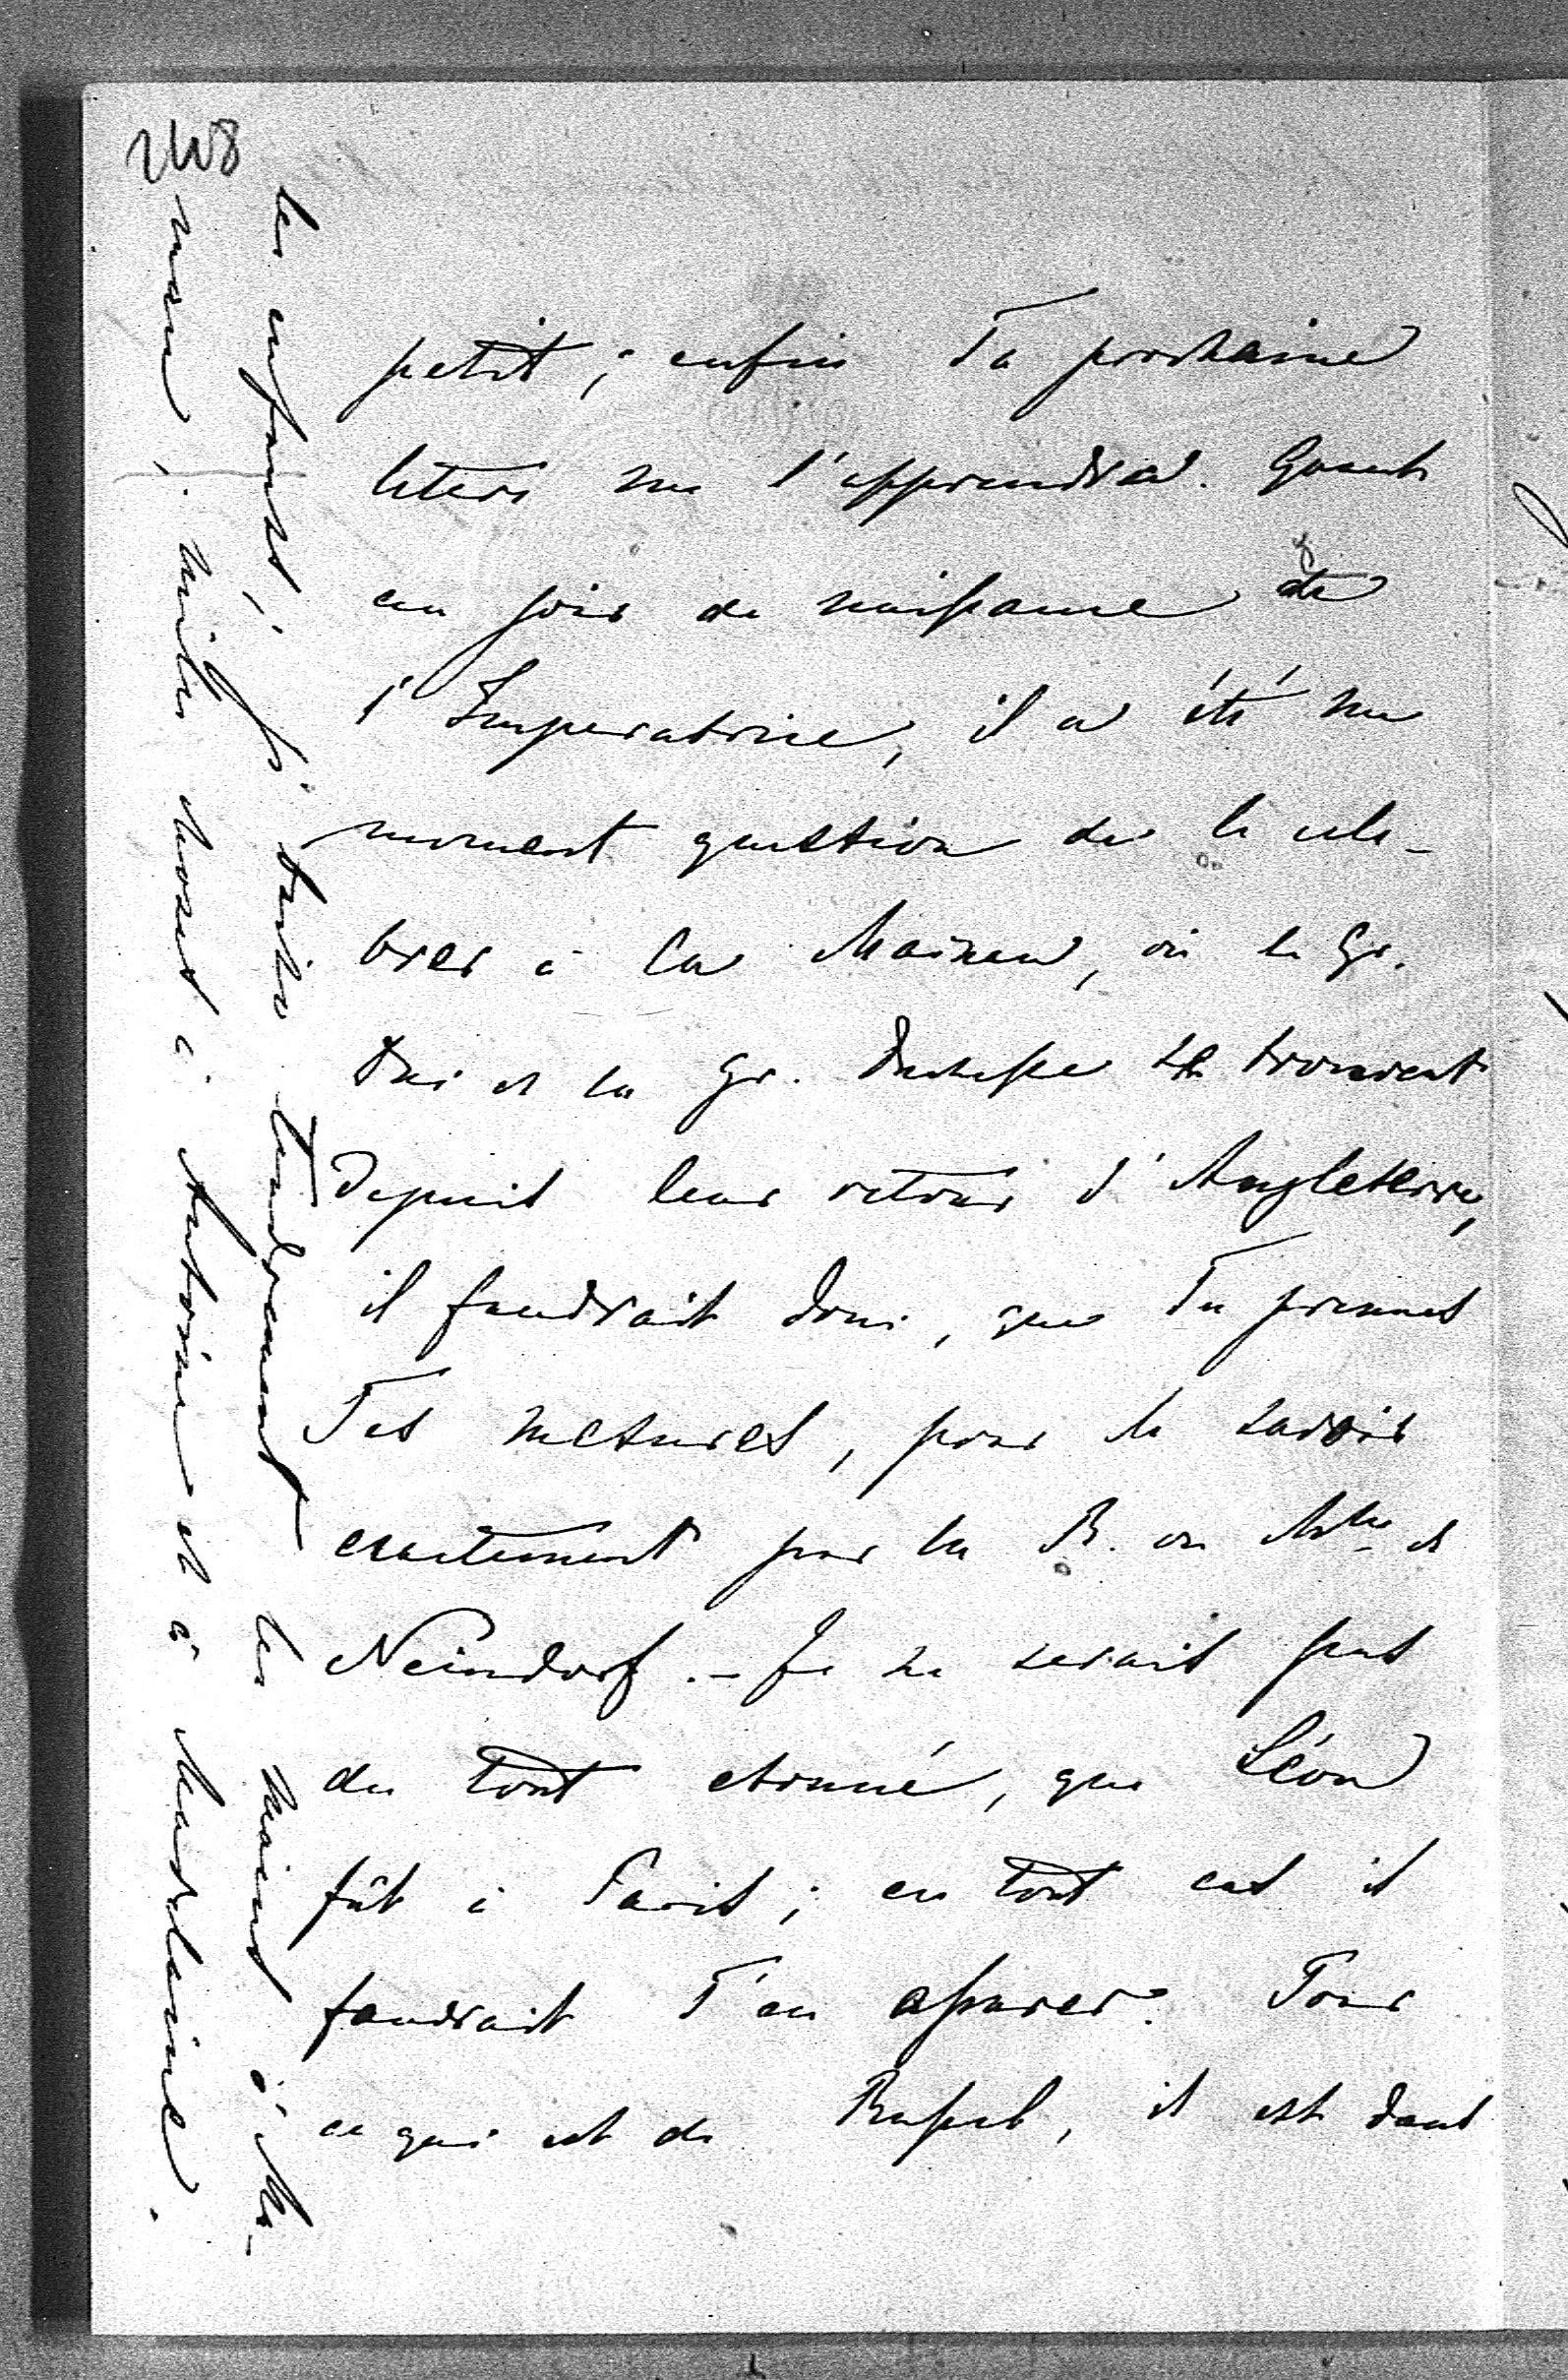 petit ; enfin Ta prochaine
lettre me l'apprendra. Quant
au jour de naissance de
l'Imperatrice, il a été un
moment question de le cele-
brer à la Mainau, où le Gr.
Duc et la Gr. Duchesse se trouvent
depuis leur retour d'Angleterre,
il faudrait donc, que Tu prennes
Tes mesures, pour le savoir
exactement par la R. ou Mlle de
Neindorf. - Je ne serais pas
du tout etonné, que Léon
fût à Paris ; en tout cas il
faudrait T'en assurer. Pour
ce qui est de Russel, il est dans
les enfants, je baise tendrement les mains à Ma-
man, milles choses à Antoine et à Madelaine.